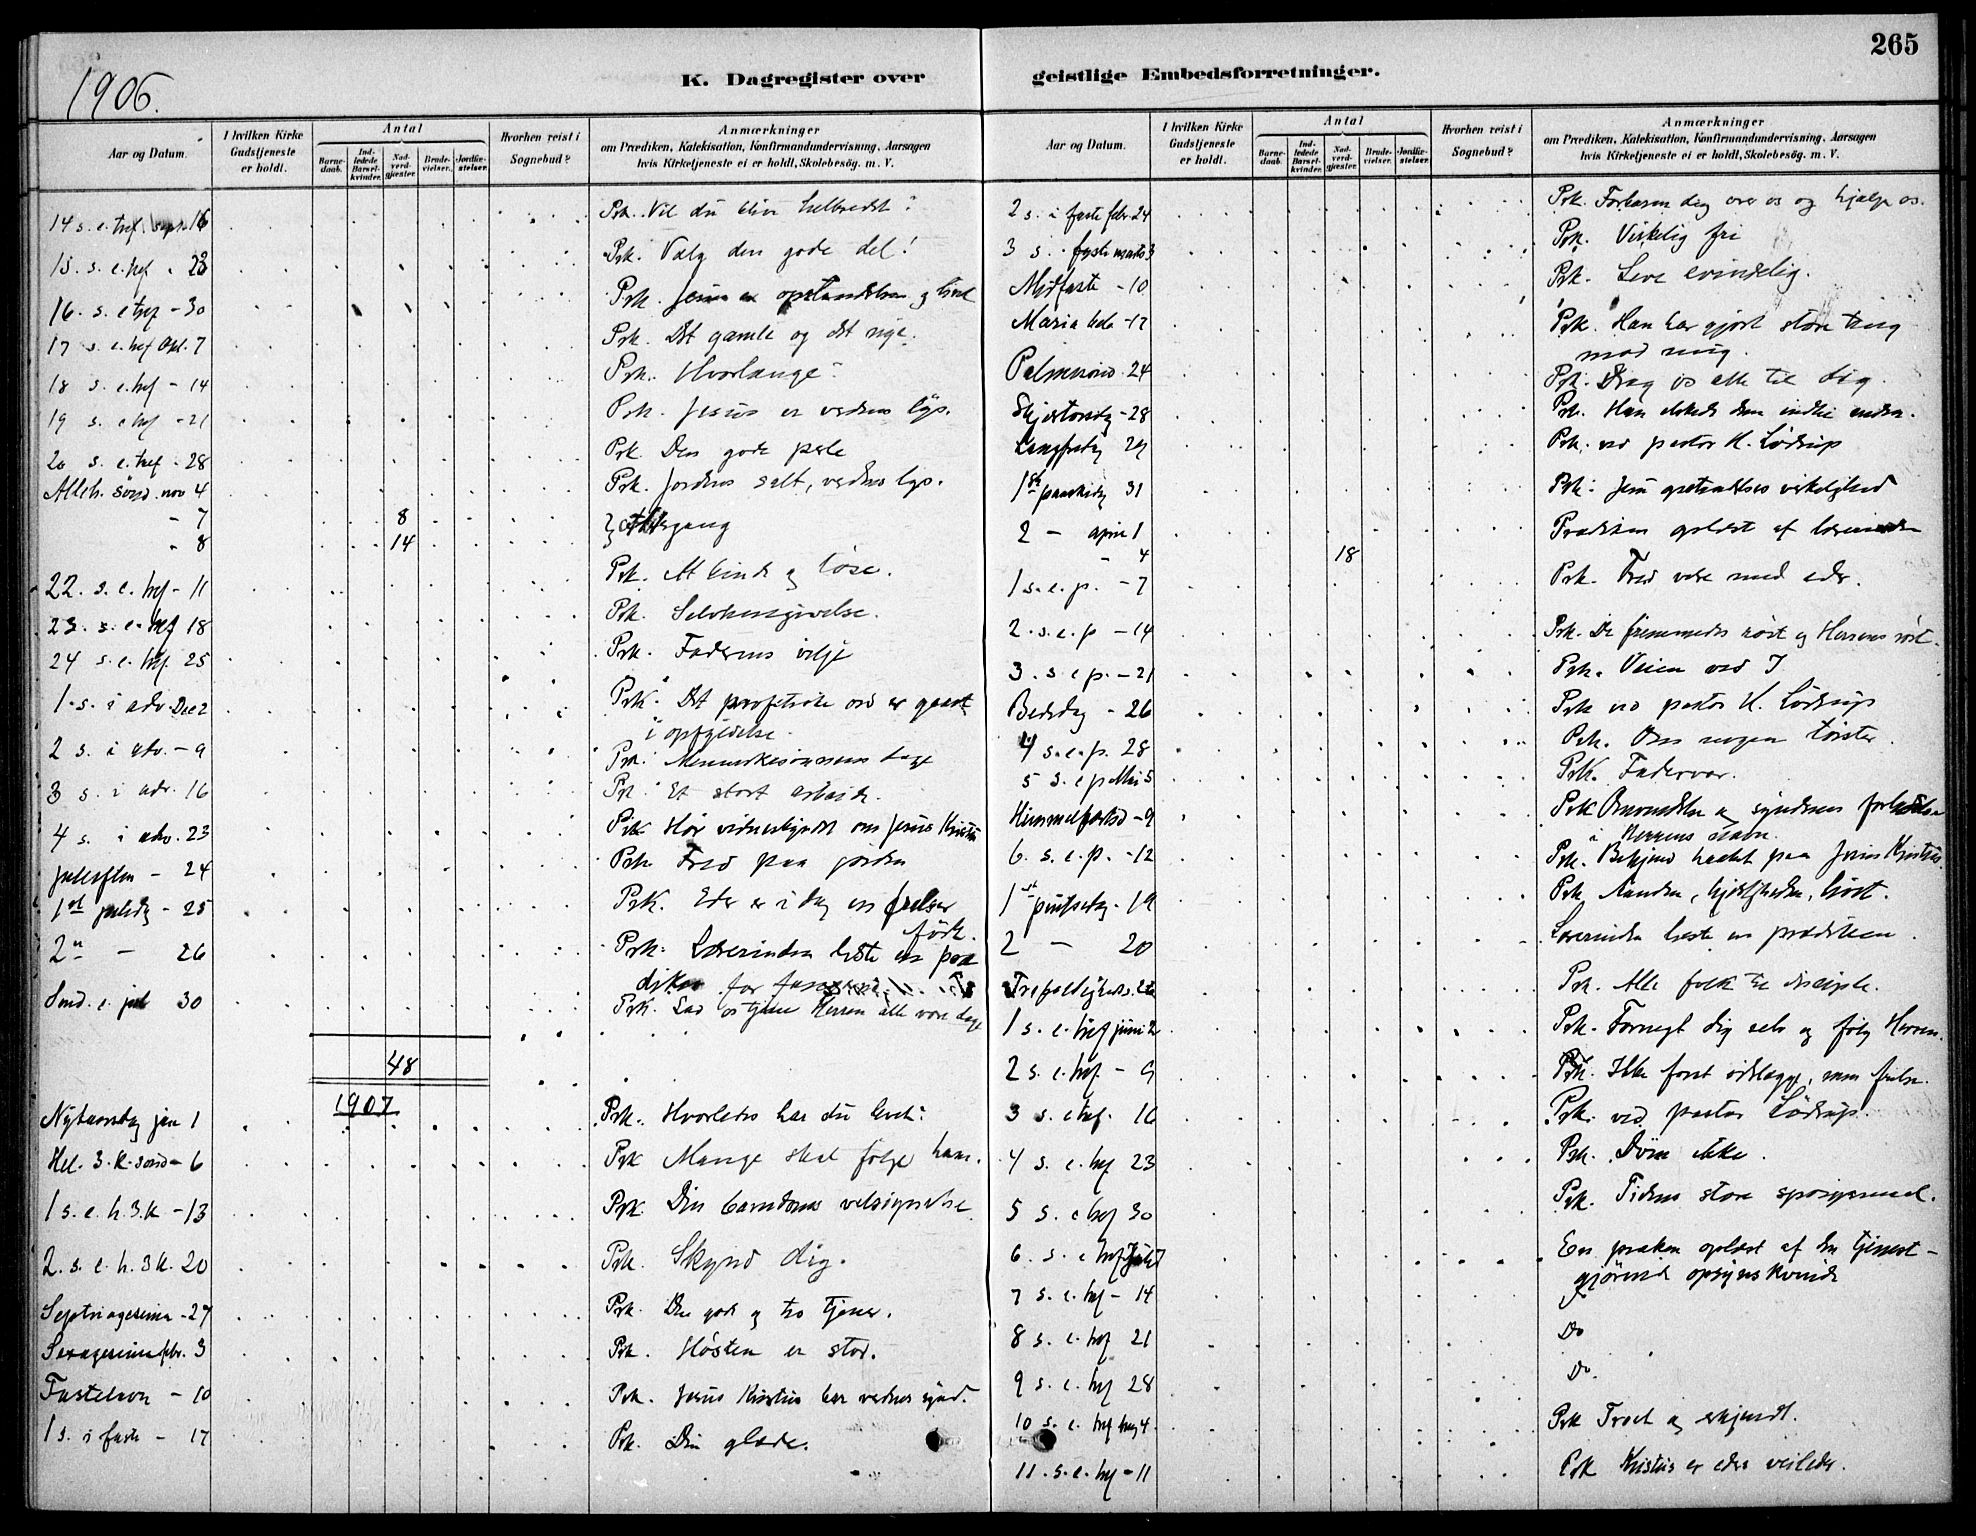 265
1906.
K. Dagregister over geistlige Embedsforretninger.
Aar og Datum.
I hvilken Kirke Gudstjeneste er holdt.
Antal
Barnedaab.
Indledede Barselkvinder.
Nadverdgjester.
Brudevielser.
Jordfæstelser.
Hvorhen reist i Sognebud?
Anmærkninger
om Prædiken, Katekisation, Konfirmandundervisning, Aarsagen
hvis Kirketjeneste ei er holdt, Skolebesög. m. V.
14 s. e. tref. sept. 16 Prk. Vil du blive helbredt?
15. s. e. tref. 23 Prk. Vælg den gode del!
16. s. e. tref - 30 Prk. Jesus er opstandelsen og livet
17 s. e. tref Okt. 7 Prk. Det gamle og det nye.
18 s. e. tref - 14 Prk. Hvorlænge
19 s. e. tref - 21 Prk. Jesus er verdens lys.
20 s. e. tref - 28 Prk Den gode perle
Alleh. sönd. nov 4 Prk. Jordens salt, verdens lys.
- 7 8
- 8 14 altergang
22. s. e. tref - 11 Prk. At binde og løse.
23. s. e. tref 18 Prk. Selvhengivelse.
24 s. e. tref. 25 Prk. Faderens vilje
1. s. i adv. Dec 2 Prk. Det profetiske ord er gaaet
i opfyldelse.
2 s. i adv. - 9 Prk. Menneskesønnens dage
3 s. i adv. 16 Prk. Et stort arbeide.
4 s. i adv. 23 Prk Hør vidnesbyrdet om Jesus Kristus
juleaften - 24 Prk Fred paa jorden
1st juledag - 25 Prk. Eder er i dag en frelser
født.
2n - 26 Prk. Lærerinden læste en præ
diken for fangerne
Sønd. e. jul 30 Prk. Lad os tjene Herren alle vore dage
48
1907
Nytaarsdag jan 1 Prk. Hvorledes har du levet?
Hel. 3. K. sønd - 6 Prk Mange skal følge ham.
1 s. e. h. 3. K - 13 Prk Din barndoms velsignelse
2. s. e. h. 3 K. 20 Prk. Skynd dig.
Septuagesima - 27 Prk. Den gode og tro tjener.
Sexagesima febr. 3 Prk. Høsten er stor.
Fastelavn - 10 Prk. Jesus Kristus bar verdens synd.
1 s. i faste - 17 Prk. Din glæde.
Aar og Datum.
I hvilken Kirke Gudstjeneste er holdt.
Antal
Barnedaab.
Indledede Barselkvinder.
Nadverdgjester.
Brudevielser.
Jordfæstelser.
Hvorhen reist i Sognebud?
Anmærkninger
om Prædiken, Katekisation, Konfirmandundervisning, Aarsagen
hvis Kirketjeneste ei er holdt, Skolebesög. m. V.
2 s. i faste febr. 24 Prk. Forbarm dig over os og hjælp os.
3 s. i faste marts 3 Prk. Virkelig fri
Midfaste - 10 Prk. Leve evindelig.
Maria beb. - 17 Prk. Han har gjort store ting
mod mig.
Palmesønd. 24 Prk. Drag os alle til dig.
Skjertorsdg - 28 Prk. Han elskede dem indtil enden.
Langfredg 29 Prk. ved pastor H. Lødrup
1st paaskedg 31 Prk. Jesu opstandelses virkelighed
2 - april 1 Prædiken oplæst af lærerinden
- 4 18
1 s. e. p. - 7 Prk. Fred være med eder.
2. s. e. p - 14 Prk. De fremmedes röst og Herrens röst.
3. s. e p. - 21 Prk. Veien ved I
Bededag - 26 Prk ved pastor H. Lødrup
4 s. e. p. 28 Prk. Om nogen tørster
5 s. e p Mai 5 Prk. Fadervor.
Himmelfartsd - 9 Prk Omvendelse og syndernes forladelse
i Herrens navn.
6. s. e. p. - 12 Prk. Bekjend haabet paa Jesus Kristus
1st pintsedag - 19 Prk Aanden, kjærligheden, livet.
2 - 20 Lærerinden læste en prædiken.
Trefoldigheds. 26 Prk. Alle folk til disciple.
1 s. e. tref juni 2 Prk. Fornegt dig selv og følg Herren.
2 s. e. tref. - 9 Prk. Ikke for at ødelægge, men frelse.
3 s. e tref. 16 Prk. ved pastor Lødrup.
4 s. e. tref 23 Prk. Døm ikke.
5 s. e tref 30 Prk. Tidens store spørgsmaal.
6. s. e tref Juli 7 En præken oplæst af den tjenest-
gjørende opsynskvinde
7 s. e. tref - 14 Do
8 s. e. tref 21 Do.
9 s. e. tref 28
10 s. e. tref Aug 4 Prk Troet og erkjendt.
11. s. e. tref - 11 Prk Kristus er eders veileder.